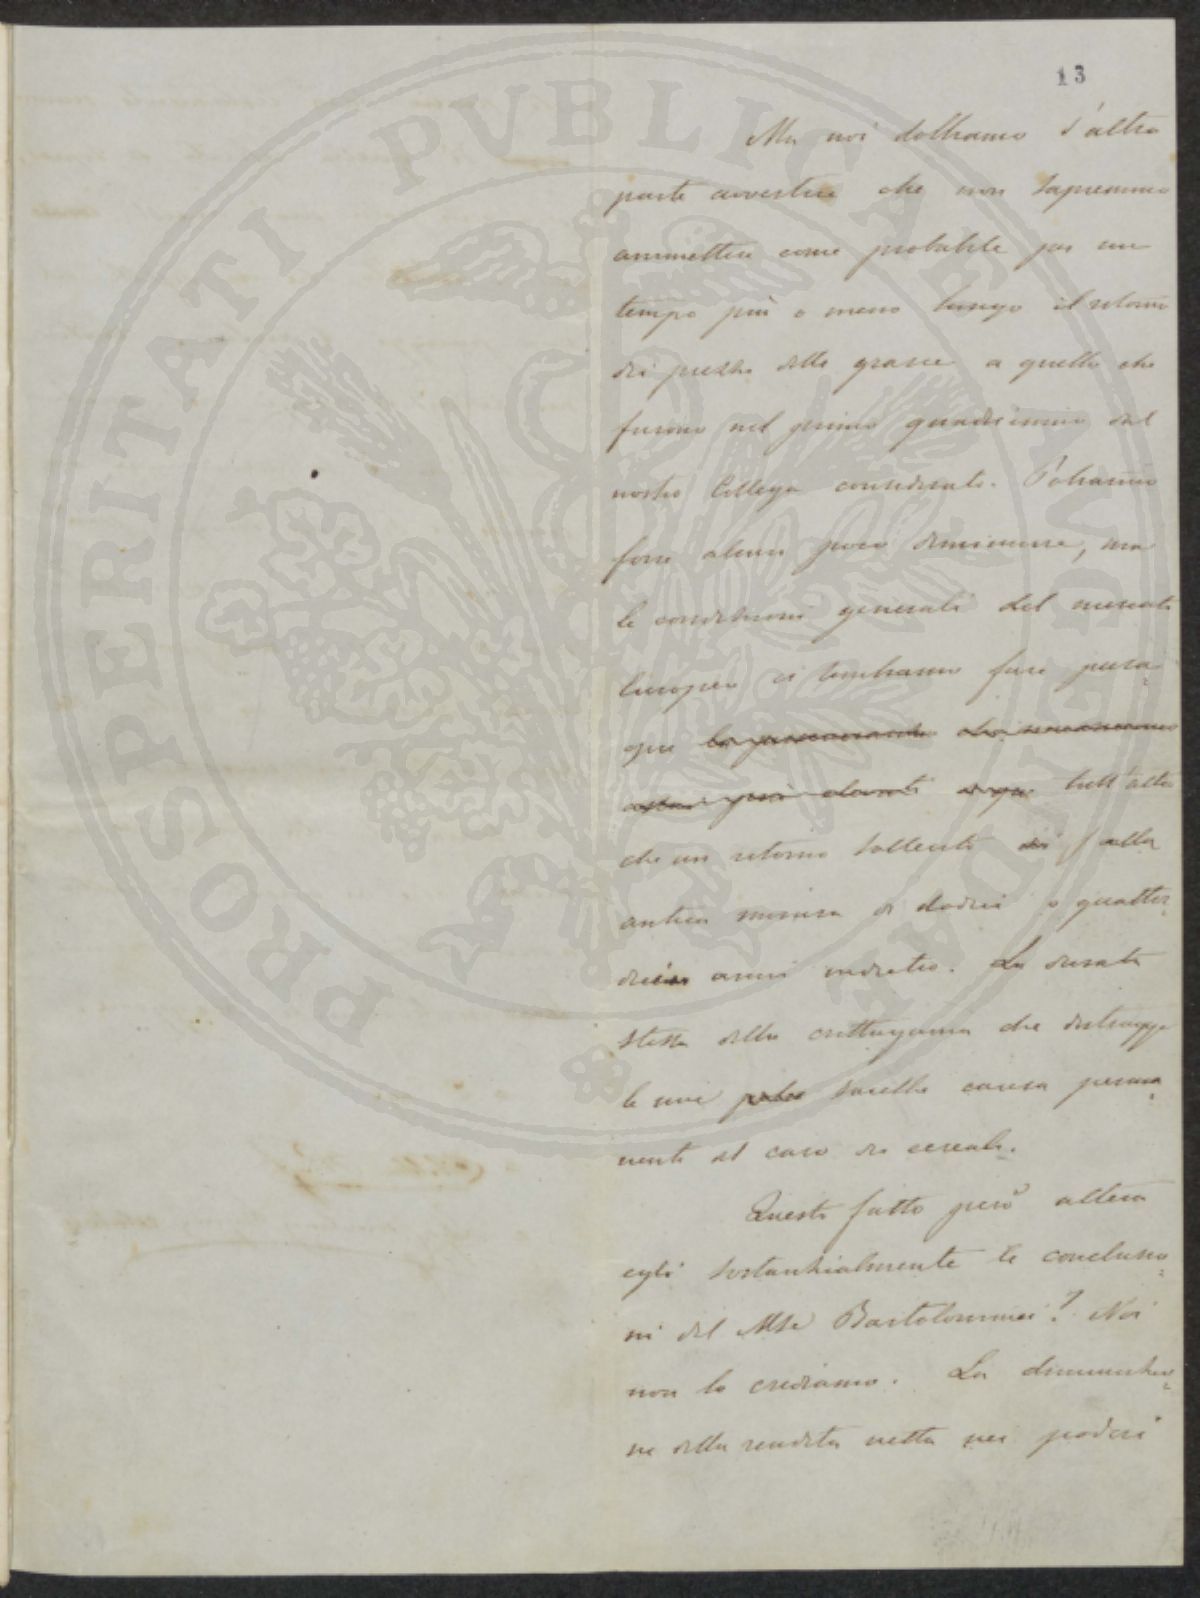 13
Ma noi dobbiamo d'altra
parte avvertire che non sapremmo
ammettere come probabile per un
tempo più o meno lungo il ritorno
dei prezzi delle grasce a quello che
furono nel primo quadriennio dal
nostro Collega considerato. Potranno
forse alcun poco diminuire, ma
le condizioni generali del mercato
Europeo ci sembrano fare presa-
gire tutt'altro
che un ritorno sollecito alla
antica misura di dodici o quattor-
dici anni indietro. La durata
stessa della crittogama che distrugge
le uve sarebbe causa perma-
nente al caro dei cereali.
Questo fatto però altera
egli sostanzialmente le conclusio-
ni del Mse Bartolommei? Noi
non lo crediamo. La diminuzio-
ne della rendita netta nei poderi
PROSPERITATI PVBLICAE AVGENDAE